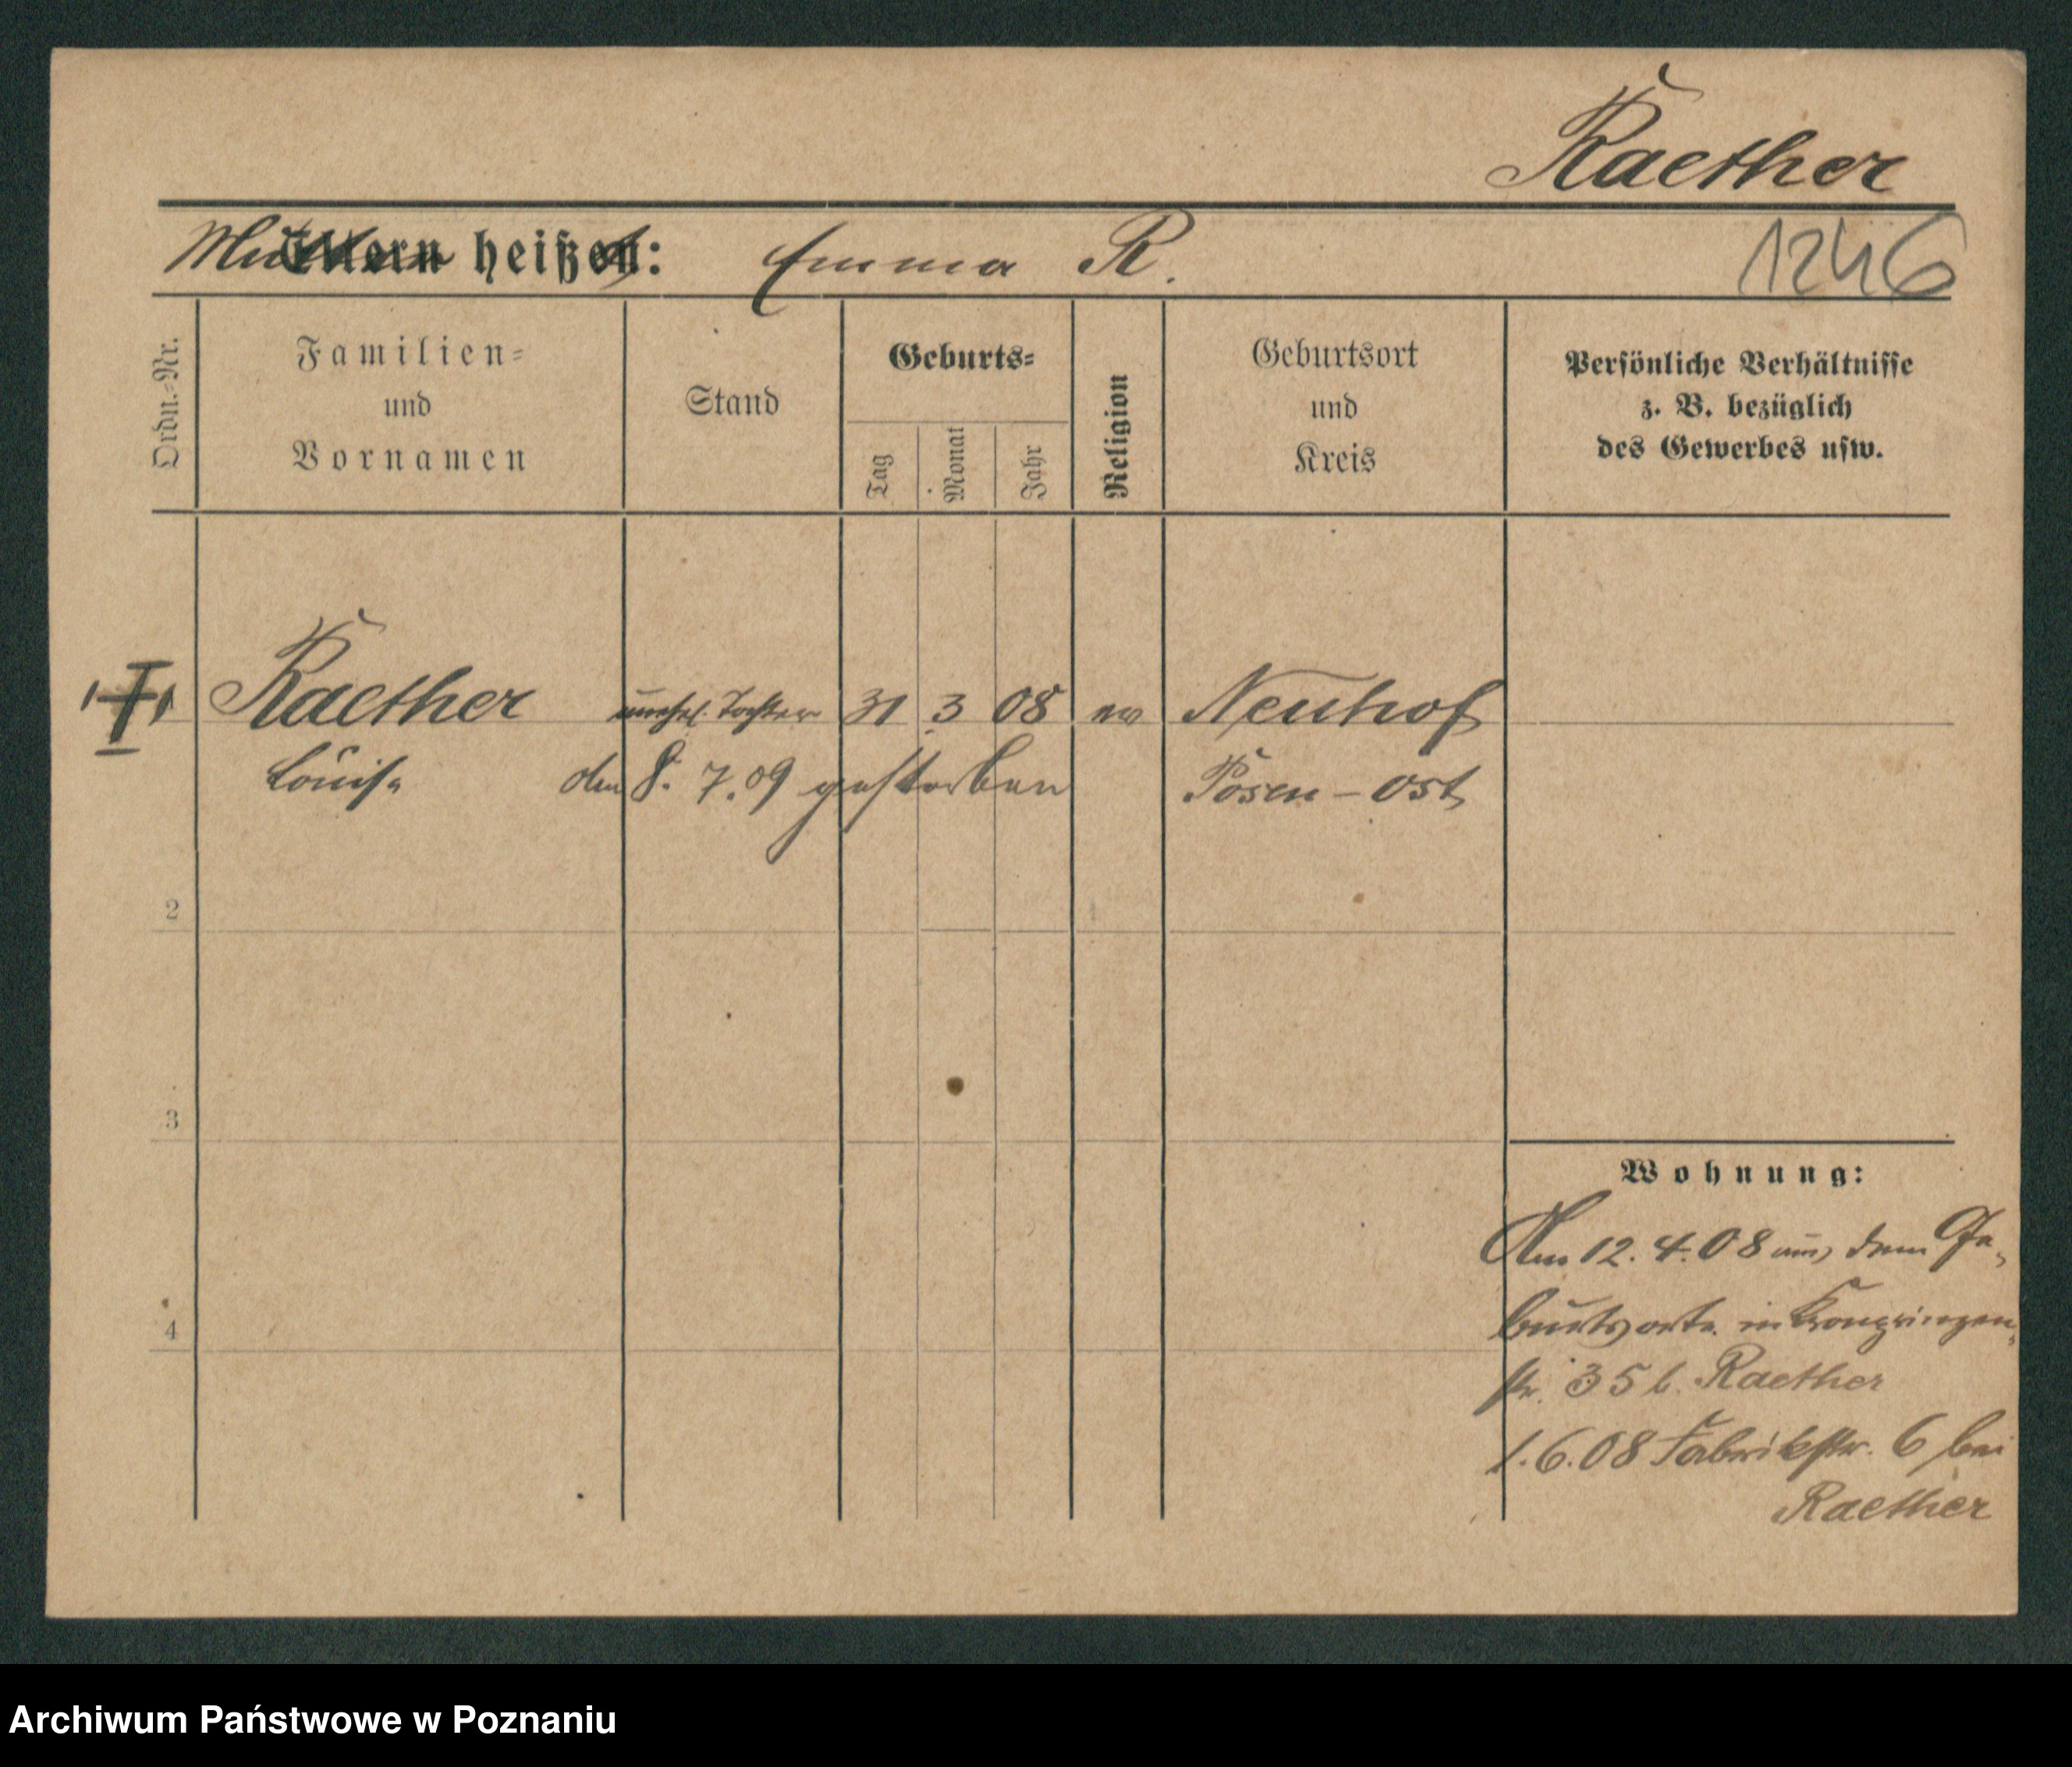 Raether
Mutter heißt: Emma R.
1246
Ordn.-Nr.
Familien-
und
Vornamen
Stand
Geburts-
Tag
Monat
Jahr
Religion
Geburtsort
und
Kreis
Persönliche Verhältnisse
z. B. bezüglich
des Gewerbes usw.
Raether unehel. Tochter 31 3 08 ev Neuhof
Louise den 8. 7. 09 gestorben Posen - Ost
2
3
4
Wohnung:
Am 12. 4. 08 aus dem Ge-
burtsorte in Kronprinzen-
str. 35 b. Raether
1. 6. 08 Fabrikstr. 6 bei
Raether
Archiwum Państwowe w Poznaniu